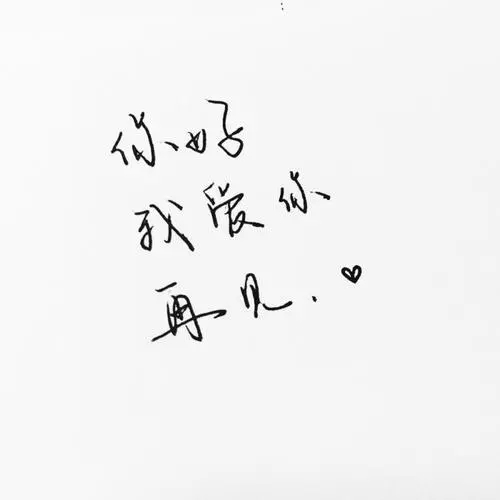 你好
我爱你
再见.